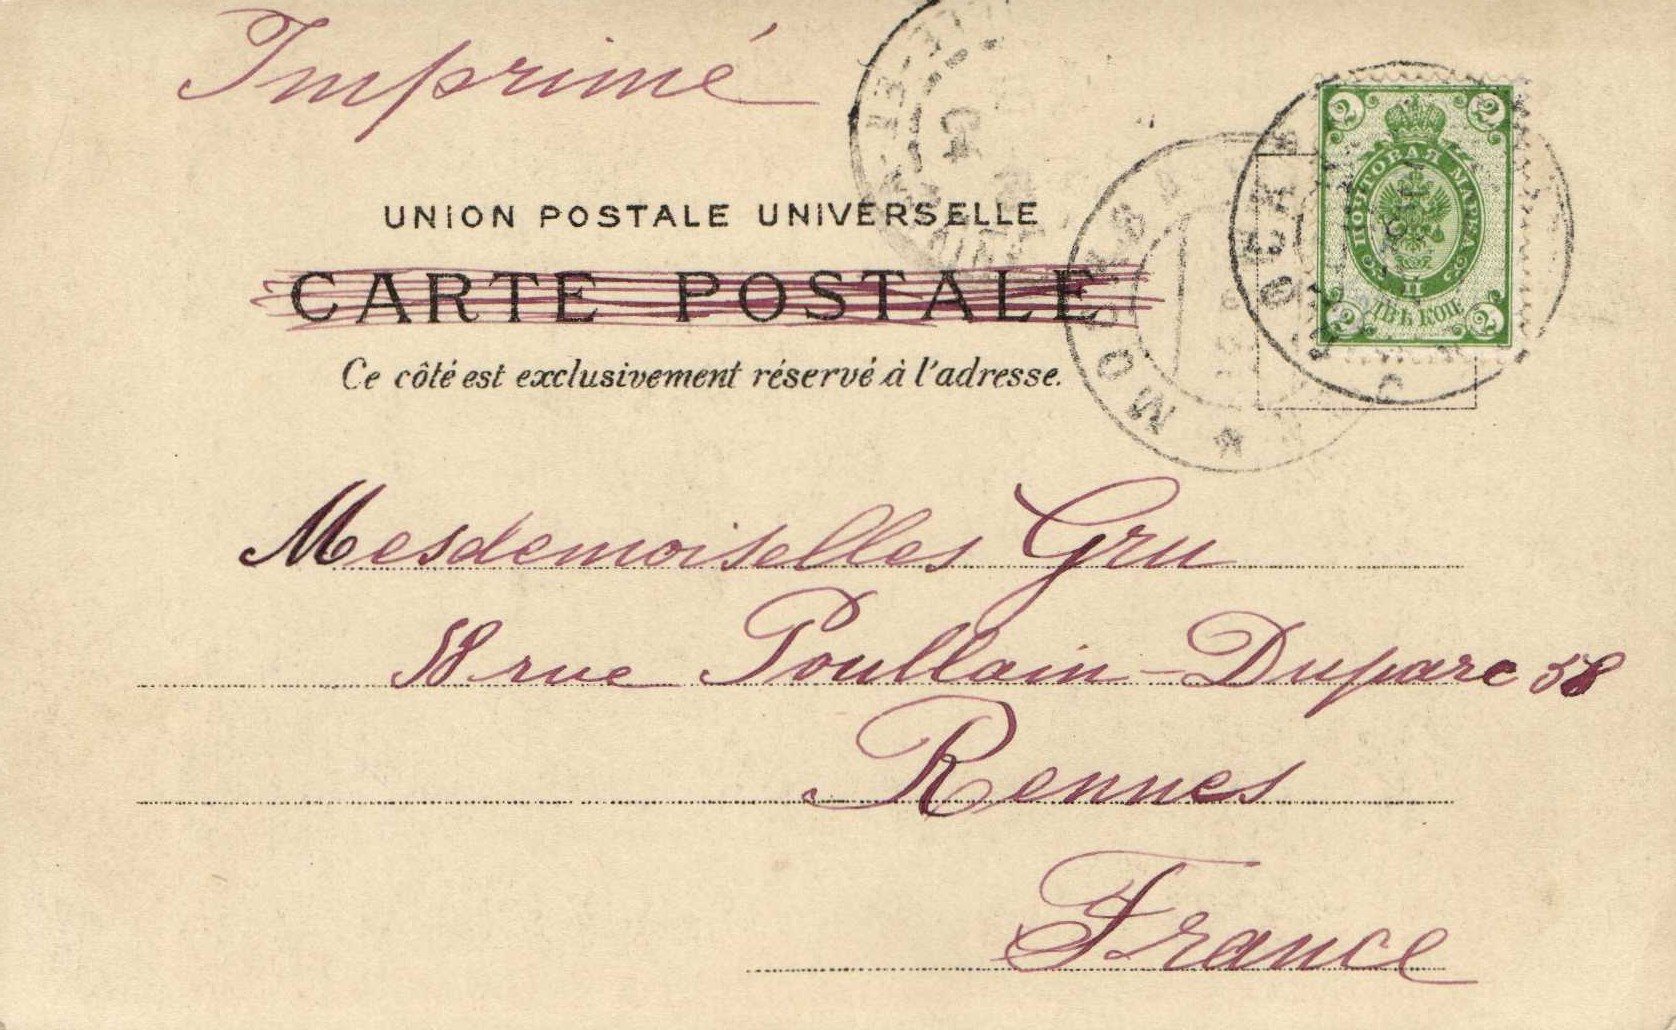 Imprimé
UNION POSTALE UNIVERSELLE
CARTE POSTALE
Ce côté est exclusivement réservé à l'adresse.
2 2
ПОЧТОВАЯ МАРКА
ДВѢ КОП
2 2
МОСКВА
МОСКВА
Mesdemoiselles Gru
58 rue Poullain-Duparc 58
Rennes
France